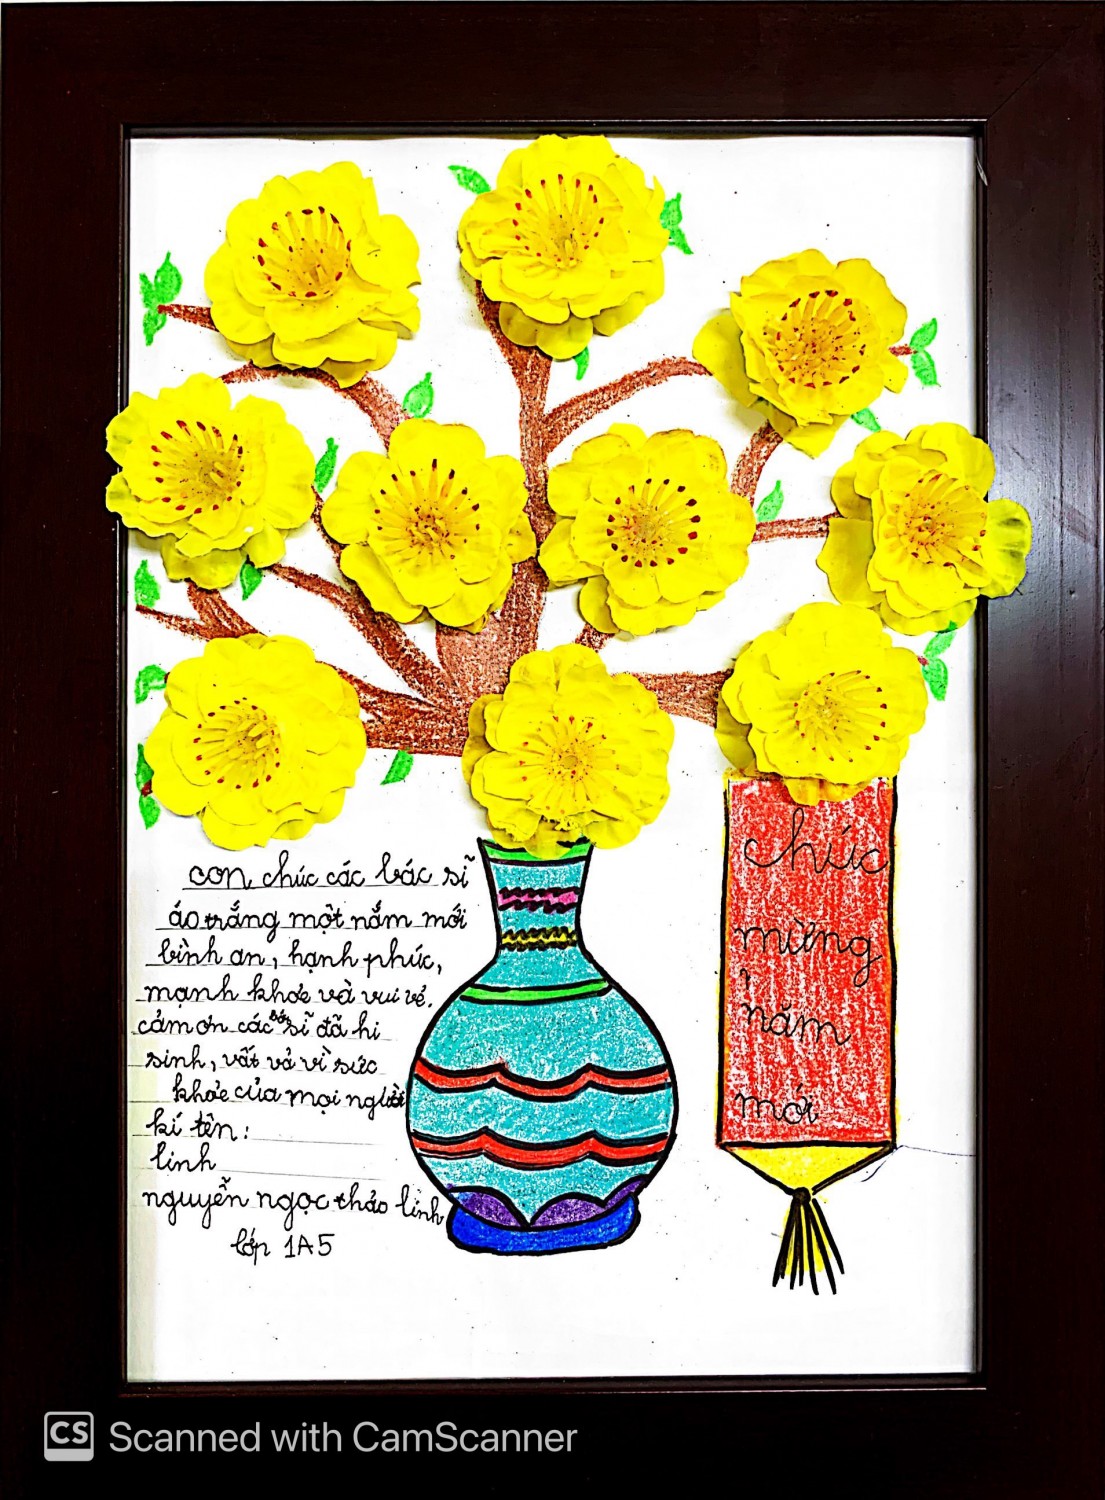 con chúc các bác sĩ
áo trắng một nắm mới
bình an, hạnh phúc,
mạnh khỏe và vui vẻ.
cảm ơn các bác sĩ đã hi
sinh, vất vả vì sức
khỏe của mọi người
kí tên:
linh
nguyễn ngọc thảo linh
lớp 1A5
chúc
mừng
năm
mới
CS Scanned with CamScanner